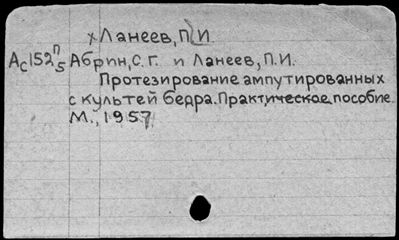 х Ланеев, П.И.
Ас152П5 Абрин, С.Г. и Ланеев, П.И.
Протезирование ампутированных
с культей бедра. Практическое пособие.
М., 1957